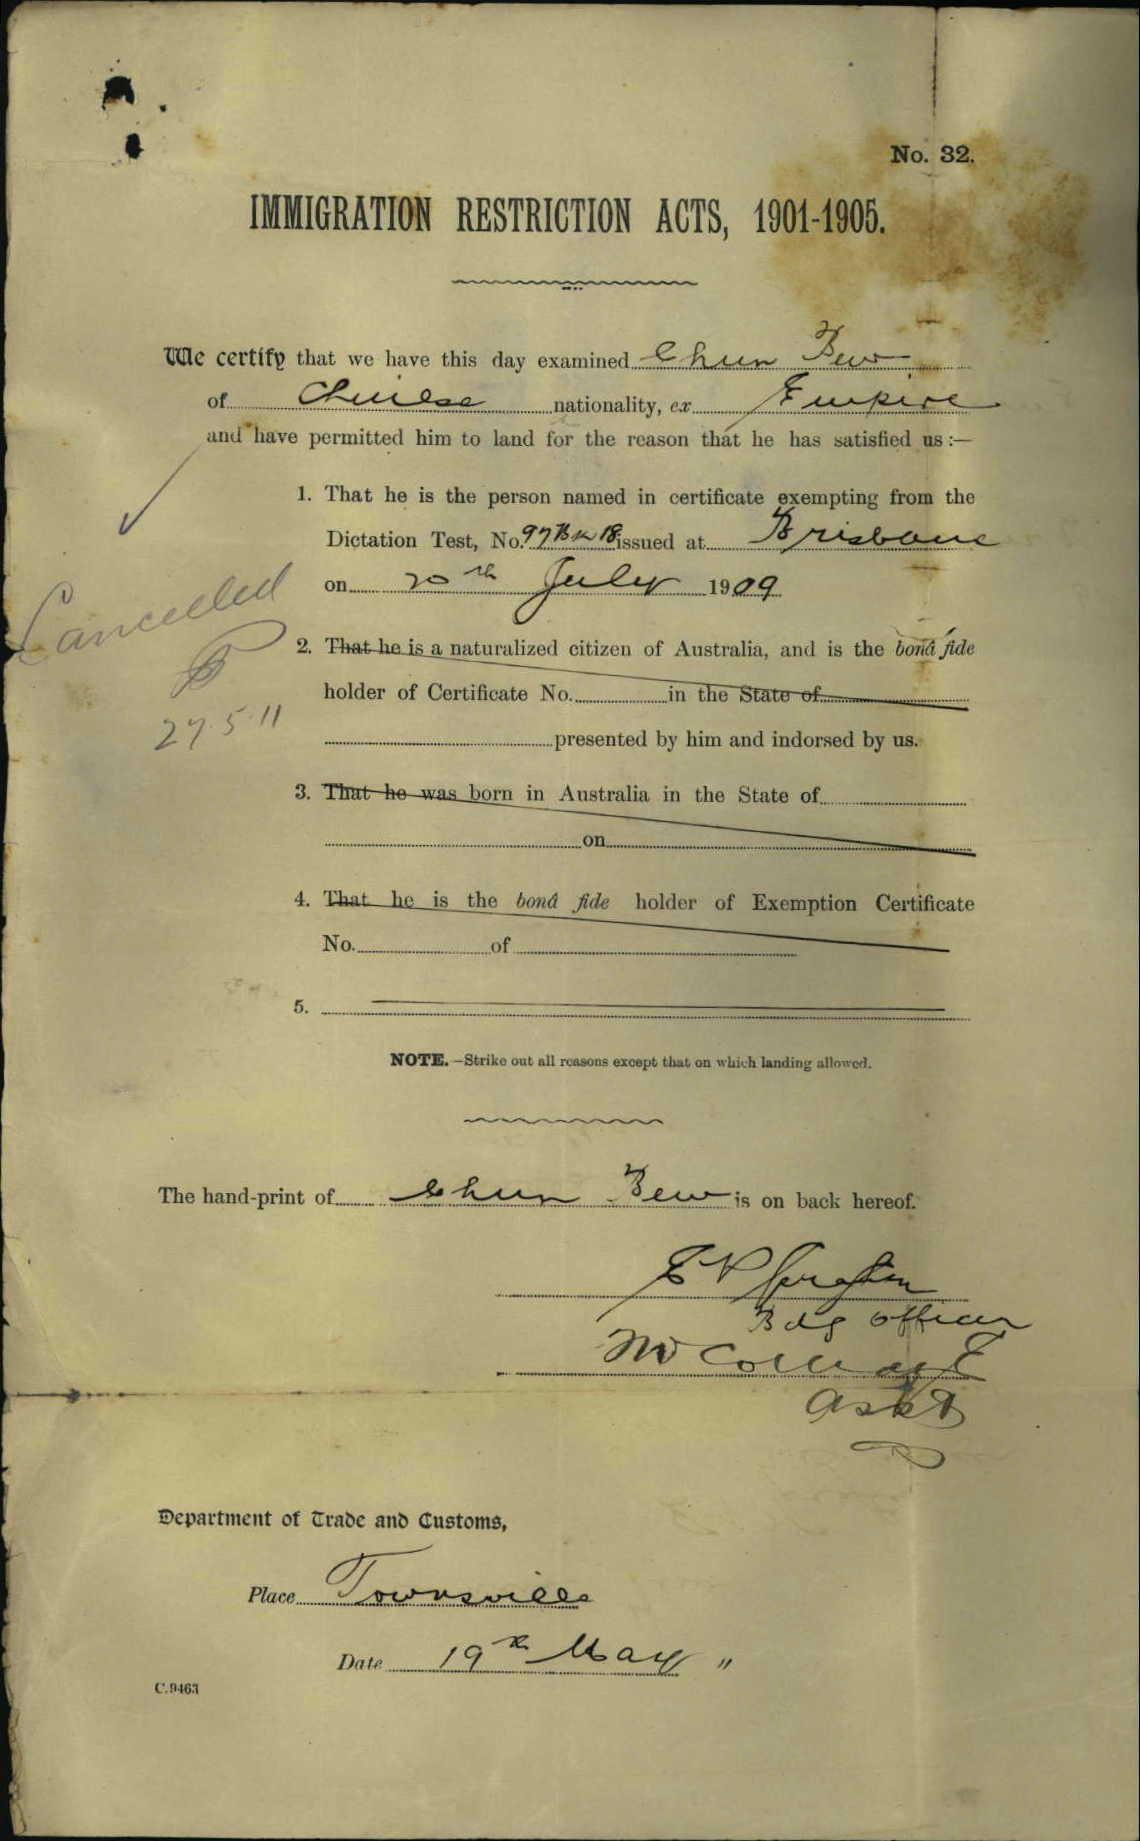 No. 32.
IMMIGRATION RESTRICTION ACTS, 1901-1905.
We certify that we have this day examined Chun Bew
of Chinese nationality, ex Empire
and have permitted him to land for the reason that he has satisfied us :—
1. That he is the person named in certificate exempting from the
Dictation Test, No. 97 Bk 18 issued at Brisbane
on 20th July 1909
Cancelled
27.5.11
2. That he is a naturalized citizen of Australia, and is the bonâ fide
holder of Certificate No. in the State of
presented by him and indorsed by us.
3. That he was born in Australia in the State of
on
4. That he is the bonâ fide holder of Exemption Certificate
No. of
5.
NOTE.—Strike out all reasons except that on which landing allowed.
The hand-print of Chun Bew is on back hereof.
Bdg Officer
Asst
Department of Trade and Customs,
Place Townsville
Date 19th May "
C.9463